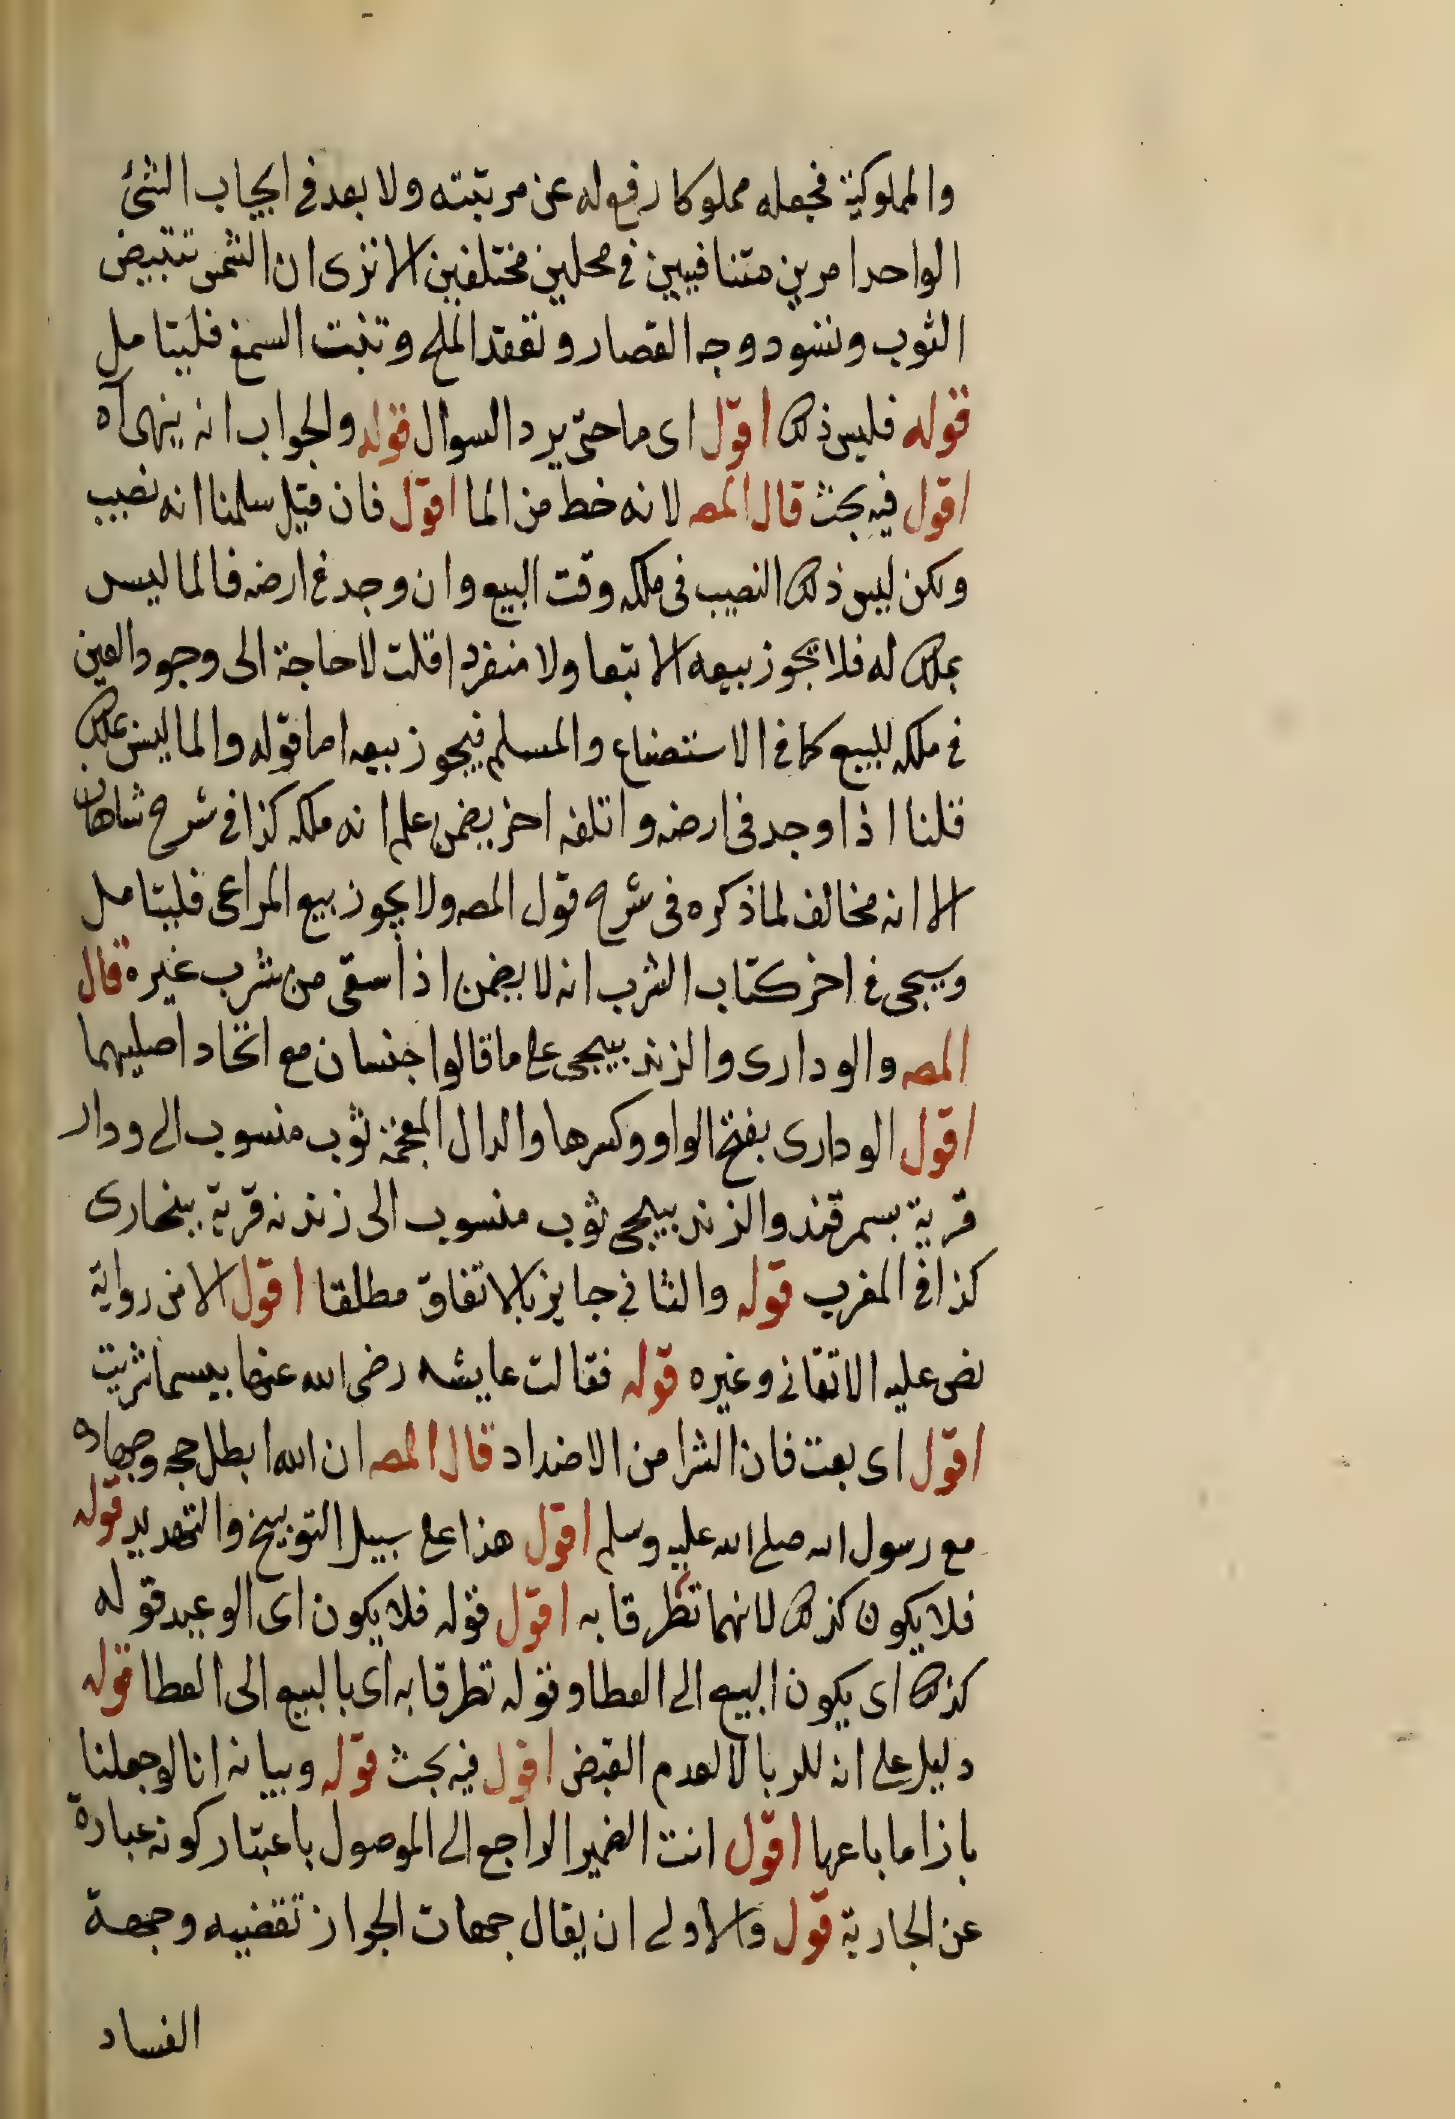 والمملوكية فجعله مملوكا رفع له عن مرتبته ولا بعد في ايجاب الشئ
الواحد امرين متنافيين في محلين مختلفين الا ترى ان الشمس تبيض
الثوب وتسود وجه القصار وتعقد الملح وتذيب السمع فليتامل
قوله فليس ذلك اقول اى ما حتى يرد السوال قوله والجواب انه ينهى آه
اقول فيه بحث قال المصـ لانه خط من الما اقول فان قيل سلمنا انه نصيب
ولكن ليس ذلك النصيب فى ملكه وقت البيع وان وجد في ارضه فالما ليس
بملك له فلا يجوز بيعه الا تبعا ولا منفردا قلت لا حاجة الى وجود العين
في ملكه للبيع كما في الاستصناع والمسلم فيجوز بيعه اما قوله والما ليس بملك
قلنا اذا وجد فى ارضه واتلفه اخر يضمن علم انه ملكه كذا فى شرح شاهان
الا انه مخالف لما ذكره فى شرح قول المصـ ولا يجوز بيع المراعى فليتامل
وسيجى في اخر كتاب الشرب انه لا يضمن اذا سقى من شرب غيره قال
المصـ والودارى والزندبيجى على ما قالوا جنسان مع اتحاد اصليهما
اقول الودارى بفتح الواو وكسرها والدال المعجمة ثوب منسوب الى ودار
قرية بسمرقند والزندبيجى ثوب منسوب الى زندنه قرية ببخارى
كذا في المغرب قوله والثاني جايز بالاتفاق مطلقا اقول الا فى رواية
نص عليه الاتقانى وغيره قوله فقالت عايشه رضى الله عنها بيسما شريت
اقول اى بعت فان الشرا من الاضداد قال المصـ ان الله ابطل حجه وجهاده
مع رسول الله صلى الله عليه وسلم اقول هذا على سبيل التوبيخ والتهديد قوله
فلا يكون كذلك لانهما تطرقا به اقول قوله فلا يكون اى الوعيد قوله
كذلك اى يكون البيع الى العطا وقوله تطرقا به اى بالبيع الى العطا قوله
دليل على انه للربا لا لعدم القبض اقول فيه بحث قوله وبيانه انا لو جعلنا
بازا ما باعها اقول انث الضمير الراجع الى الموصول باعتبار كونه عبارة
عن الجارية قول والاولى ان يقال جهات الجواز تقضيه وجهة
الفساد